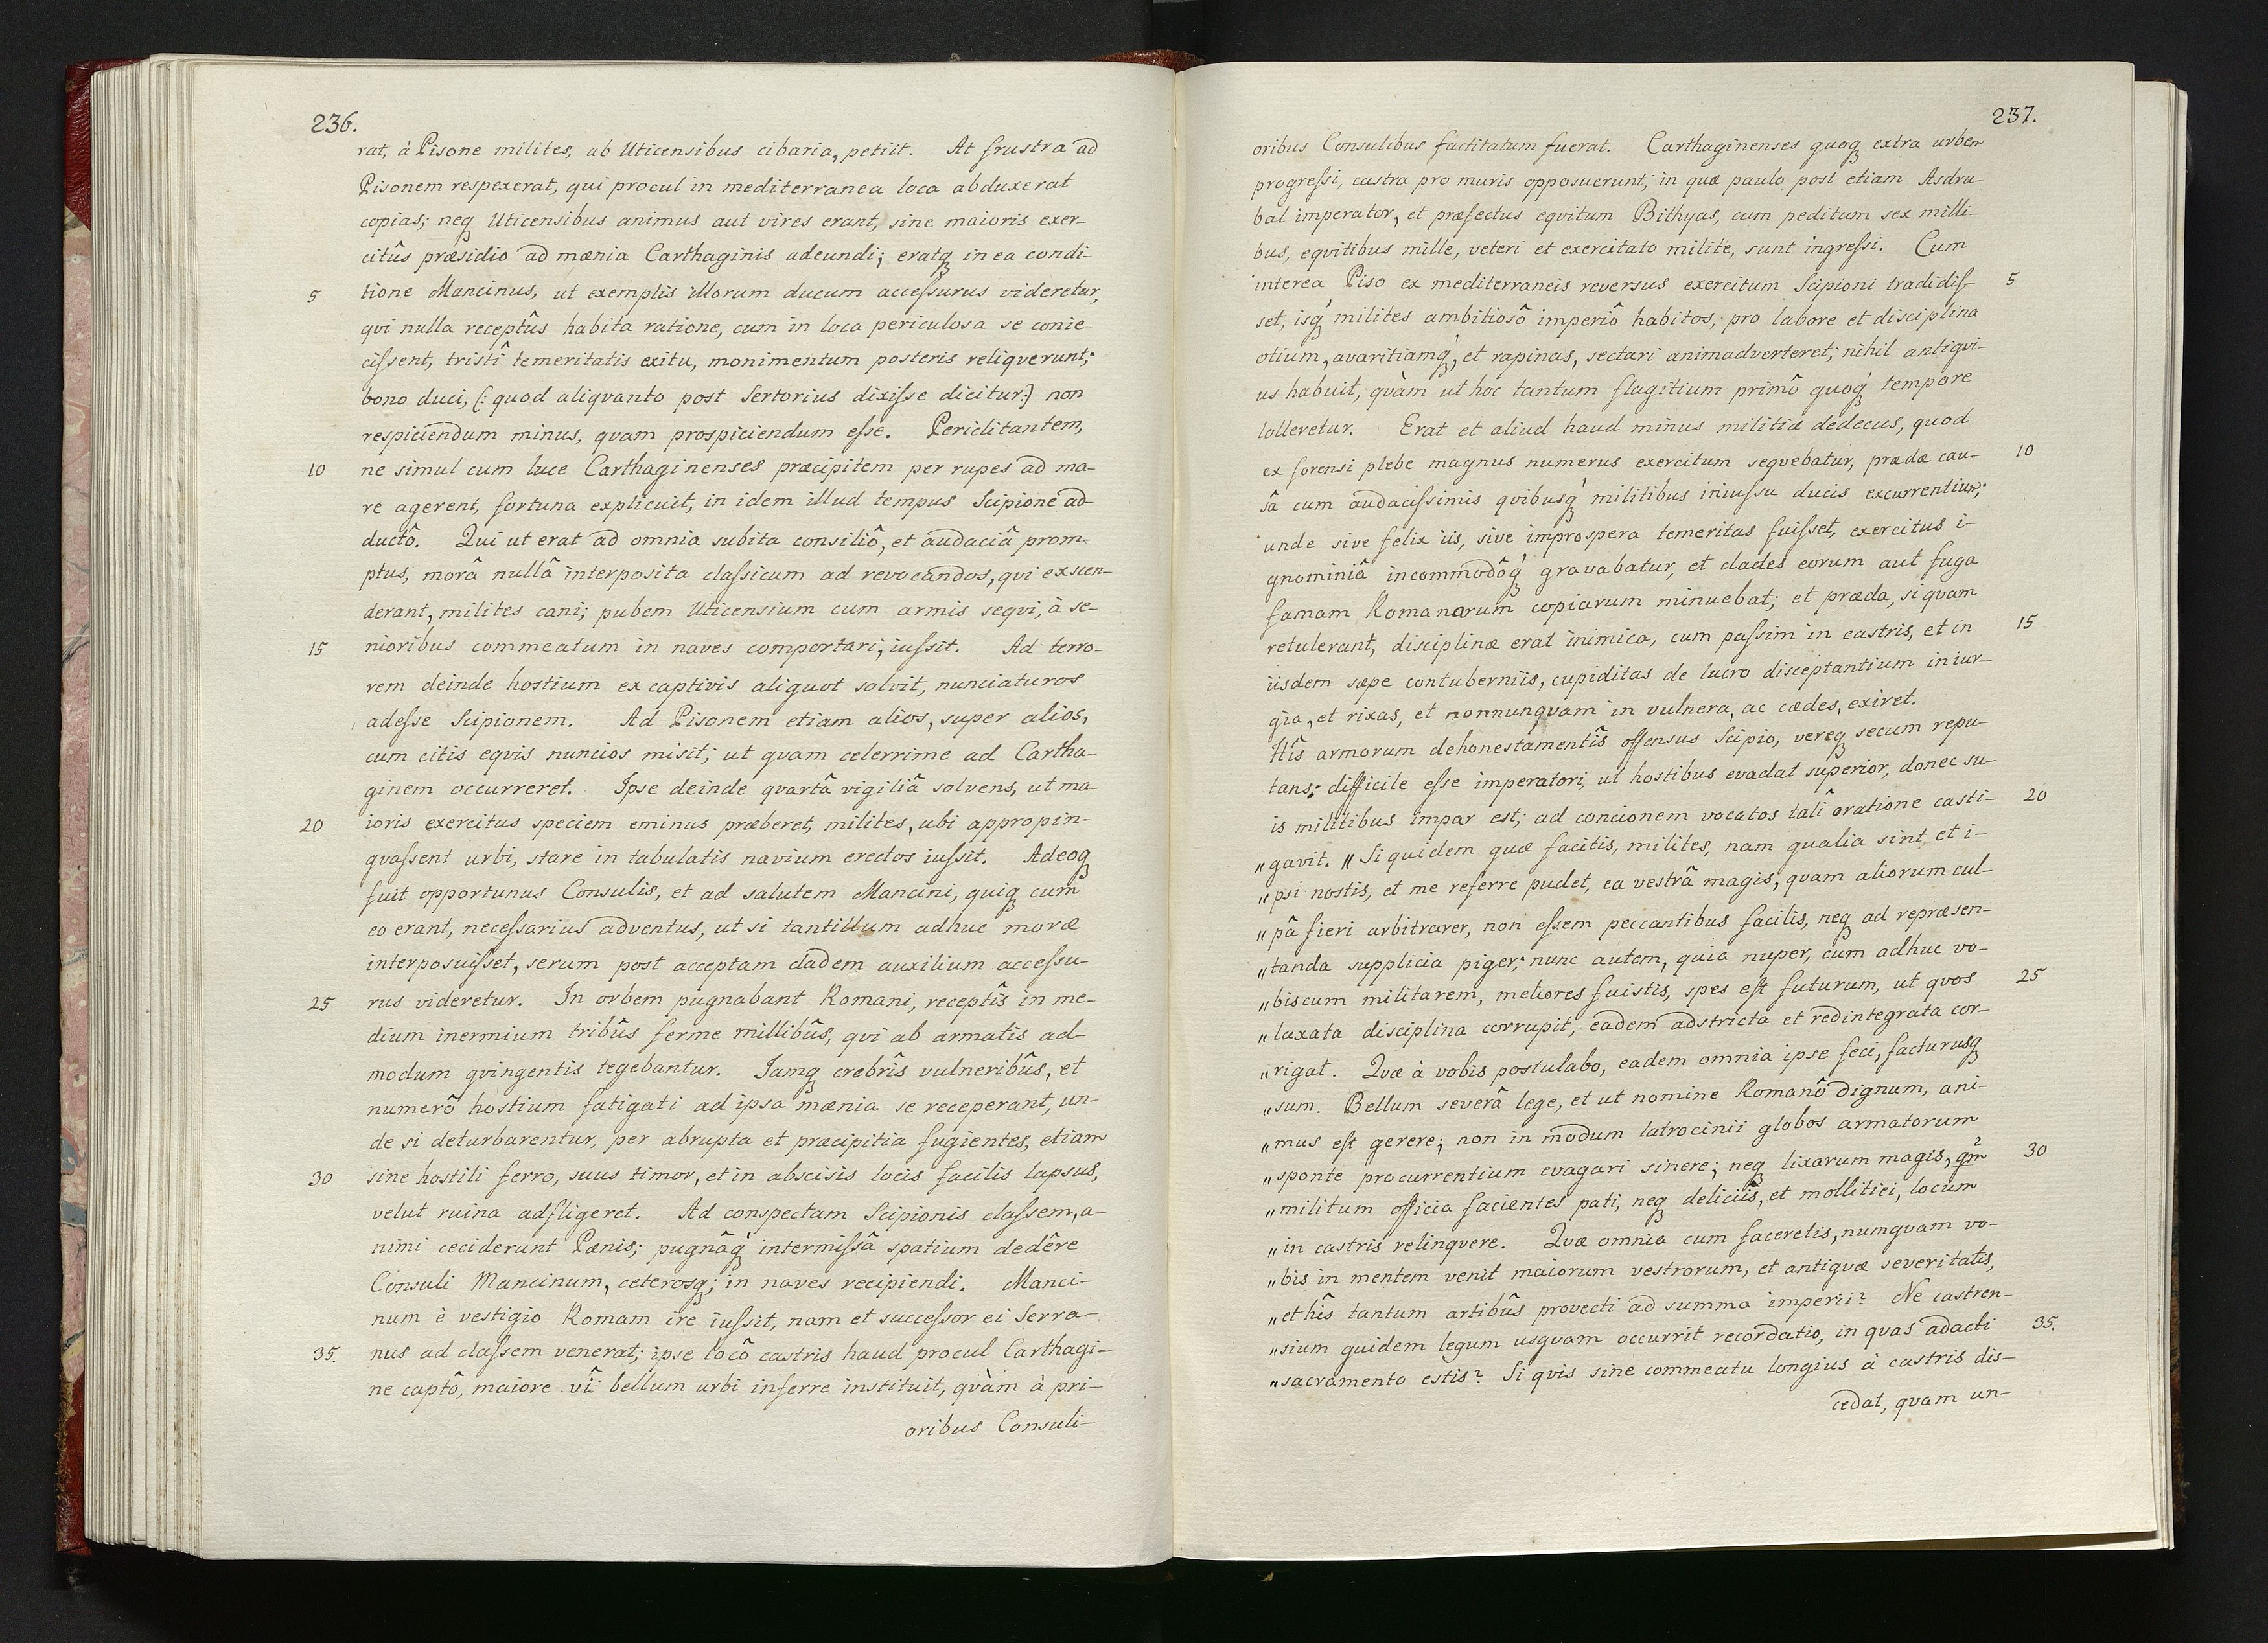 236.
rat, à Pisone milites, ab Uticensibus cibaria, petiit. At frustra ad
Pisonem respexerat, qui procul in mediterranea loca abduxerat
copias; neqꝫ Uticensibus animus aut vires erant, sine maioris exer-
citûs præsidio ad mænia Carthaginis adeundi; eratqꝫ in ea condi-
5 tione Mancinus, ut exemplis illorum ducum acceſsurus videretur,
qvi nulla receptûs habita ratione, cum in loca periculosa se conie-
ciſsent, tristî temeritatis exitu, monimentum posteris reliqverunt;
bono duci, (: quod aliqvanto post Sertorius dixiſse dicitur:) non
respiciendum minus, qvam prospiciendum eſse. Periclitantem,
10 ne simul cum luce Carthaginenses præcipitem per rupes ad ma-
re agerent, fortuna explicuit, in idem illud tempus Scipione ad-
ductô. Qui ut erat ad omnia subita consiliô, et audaciâ prom-
ptus, morâ nullâ interposita claſsicum ad revocandos, qvi exscen-
derant, milites cani; pubem Uticensium cum armis seqvi, à se-
15 nioribus commeatum in naves comportari; iuſsit. Ad terro-
rem deinde hostium ex captivis aliquot solvit, nunciaturos
adeſse Scipionem. Ad Pisonem etiam alios, super alios,
cum citis eqvis nuncios misit; ut qvam celerrime ad Cartha-
ginem occurreret. Ipse deinde qvartâ vigiliâ solvens, ut ma-
20 ioris exercitus speciem eminus præberet, milites, ubi appropin-
qvaſsent urbi, stare in tabulatis navium erectos iuſsit. Adeoqꝫ
fuit opportunus Consulis, et ad salutem Mancini, quiqꝫ cum
eo erant, neceſsarius adventus, ut si tantillum adhuc moræ
interposuiſset, serum post acceptam cladem auxilium acceſsu-
25 rus videretur. In orbem pugnabant Romani, receptîs in me-
dium inermium tribûs ferme millibûs, qvi ab armatis ad
modum qvingentis tegebantur. Iamqꝫ crebrîs vulneribûs, et
numerô hostium fatigati ad ipsa mænia se receperant, un-
de si deturbarentur, per abrupta et præcipitia fugientes, etiam
30 sine hostili ferro, suus timor, et in abscisis locis facilis lapsus,
velut ruina adfligeret. Ad conspectam Scipionis claſsem, a-
nimi ceciderunt Pænis; pugnâqꝫ intermiſsâ spatium dedêre
Consuli Mancinum, ceterosqꝫ; in naves recipiendi. Manci-
num è vestigio Romam ire iuſsit, nam et succeſsor ei Serra-
35. nus ad claſsem venerat; ipse locô castris haud procul Carthagi-
ne captô, maiore vî bellum urbi inferre instituit, qvàm à pri-
oribus Consuli-
237.
oribus Consulibus factitatum fuerat. Carthaginenses quoqꝫ extra urbem
progreſsi, castra pro muris opposuerunt; in quæ paulo post etiam Asdru-
bal imperator, et præfectus eqvitum Bithyas, cum peditum sex milli-
bus, eqvitibus mille, veteri et exercitato milite, sunt ingreſsi. Cum
interea Piso ex mediterraneis reversus exercitum Scipioni tradidiſ- 5
set, isqꝫ milites ambitiosô imperiô habitos, pro labore et disciplina
otium, avaritiamqꝫ, et rapinas, sectari animadverteret; nihil antiqvi-
us habuit, qvàm ut hoc tantum flagitium primô quoqꝫ tempore
tolleretur. Erat et aliud haud minus militiæ dedecus, quod
ex forensi plebe magnus numerus exercitum seqvebatur, prædæ cau- 10
sâ cum audaciſsimis qvibusqꝫ militibus iniuſsu ducis excurrentium;
unde sive felix iis, sive improspera temeritas fuiſset, exercitus i-
gnominiâ incommodôqꝫ gravabatur, et clades eorum aut fuga
famam Romanarum copiarum minuebat; et præda, si qvam
retulerant, disciplinæ erat inimica, cum paſsim in castris, et in 15
iisdem sæpe contuberniis, cupiditas de lucro disceptantium in iur-
gia, et rixas, et nonnunqvam in vulnera, ac cædes, exiret.
Hîs armorum dehonestamentîs offensus Scipio, vereqꝫ secum repu-
tans; difficile eſse imperatori, ut hostibus evadat superior, donec su-
is militibus impar est; ad concionem vocatos talî oratione casti- 20
„gavit. „Siquidem quæ facitis, milites, nam qualia sint, et i-
„psi nostis, et me referre pudet, ea vestrâ magis, quam aliorum cul-
„pâ fieri arbitrarer, non eſsem peccantibus facilis, neqꝫ ad repræsen-
„tanda supplicia piger; nunc autem, quia nuper, cum adhuc vo-
„biscum militarem, meliores fuistis, spes eſt futurum, ut qvos 25
„laxata disciplina corrupit, eadem adstricta et redintegrata cor-
„rigat. Qvæ à vobis postulabo, eadem omnia ipse feci, facturusqꝫ
„sum. Bellum severâ lege, et ut nomine Romanô dignum, ani-
„mus eſt gerere; non in modum latrocinii globos armatorum
„sponte procurrentium evagari sinere; neqꝫ lixarum magis, qm̃ 30
„militum officia facientes pati, neqꝫ deliciîs, et mollitiei, locum
„in castris relinqvere. Qvæ omnia cum faceretis, numqvam vo-
„bis in mentem venit maiorum vestrorum, et antiqvæ severitatis,
„et hîs tantum artibûs provecti ad summa imperii? Ne castren-
„sium quidem legum usqvam occurrit recordatio, in quas adacti 35.
„sacramento estis? Si qvis sine commeatu longius à castris dis-
cedat, qvam un-